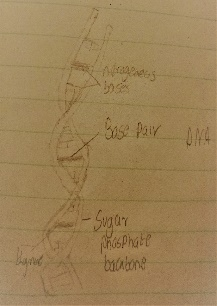 nitrogenous
bases
Base pair
DNA
Sugar
phosphate
backbone